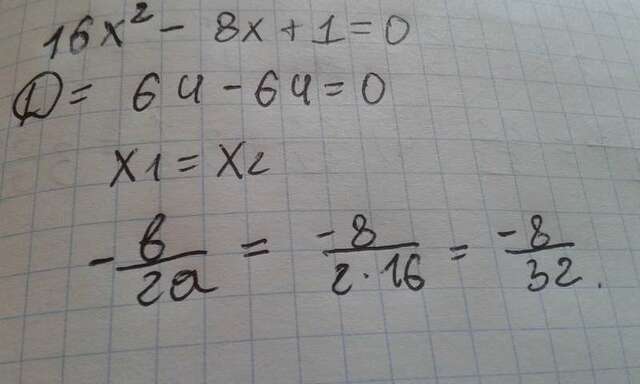 16x² - 8x + 1 = 0
D = 64 - 64 = 0
x1 = x2
- b/2a = -8/2·16 = -8/32.